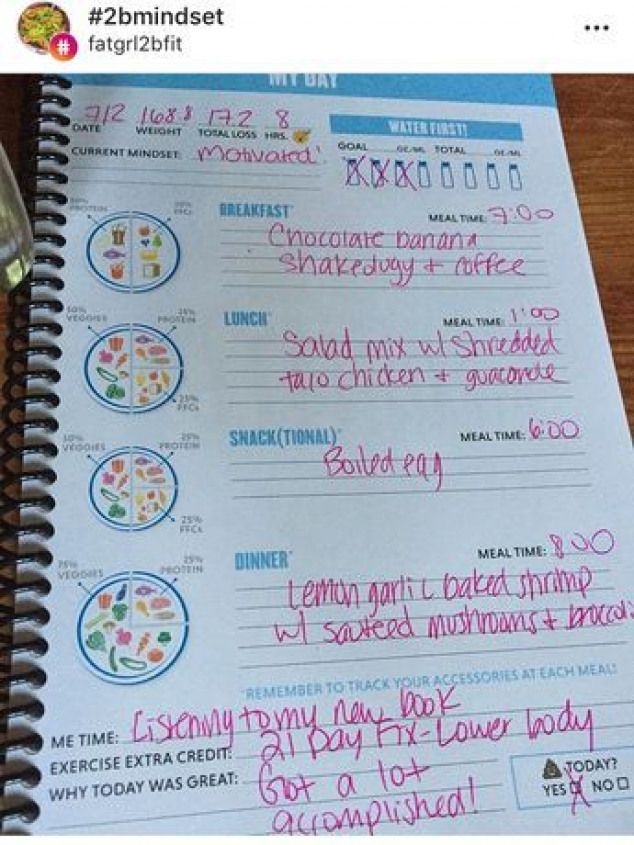 #2bmindset
fatgrl2bfit
MY DAY
7/2 168.8 17.2 8
DATE WEIGHT TOTAL LOSS HRS.
CURRENT MINDSET: Motivated!
WATER FIRST!
GOAL OZ/ML TOTAL OZ/ML
50% PROTEIN
50% FFCs
BREAKFAST
MEAL TIME: 7:00
Chocolate banana
Shakeology + coffee
50% VEGGIES
25% PROTEIN
25% FFCs
LUNCH
MEAL TIME: 1:00
Salad mix w/ Shredded
taco chicken + guacamole
50% VEGGIES
25% PROTEIN
25% FFCs
SNACK(TIONAL)
MEAL TIME: 6:00
Boiled egg
75% VEGGIES
25% PROTEIN
DINNER
MEAL TIME: 8:00
Lemon garlic baked shrimp
w/ sauteed mushrooms + broccoli
*REMEMBER TO TRACK YOUR ACCESSORIES AT EACH MEAL!
ME TIME: Listening to my new book
EXERCISE EXTRA CREDIT: 21 Day Fix-Lower body
WHY TODAY WAS GREAT: Got a lot
accomplished!
TODAY?
YES NO